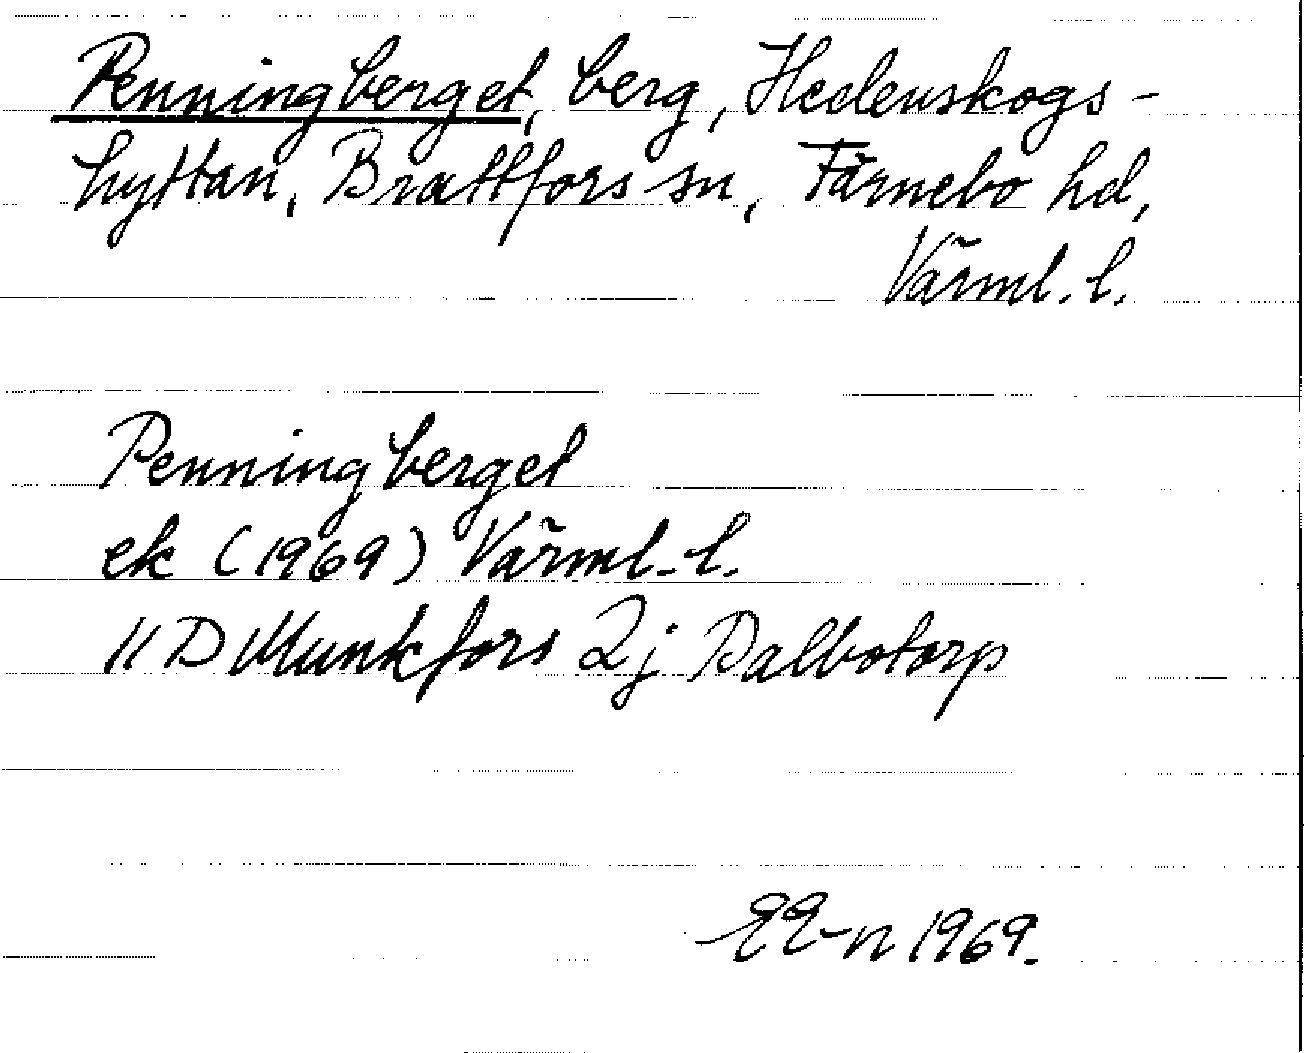 Penningberget, berg, Hedenskogs-
hyttan, Brattfors sn, Färnebo hd,
Värml. l.
Penningberget
ek (1969) Värml. l.
11 D Munkfors 2j Dalbotorp
1969.